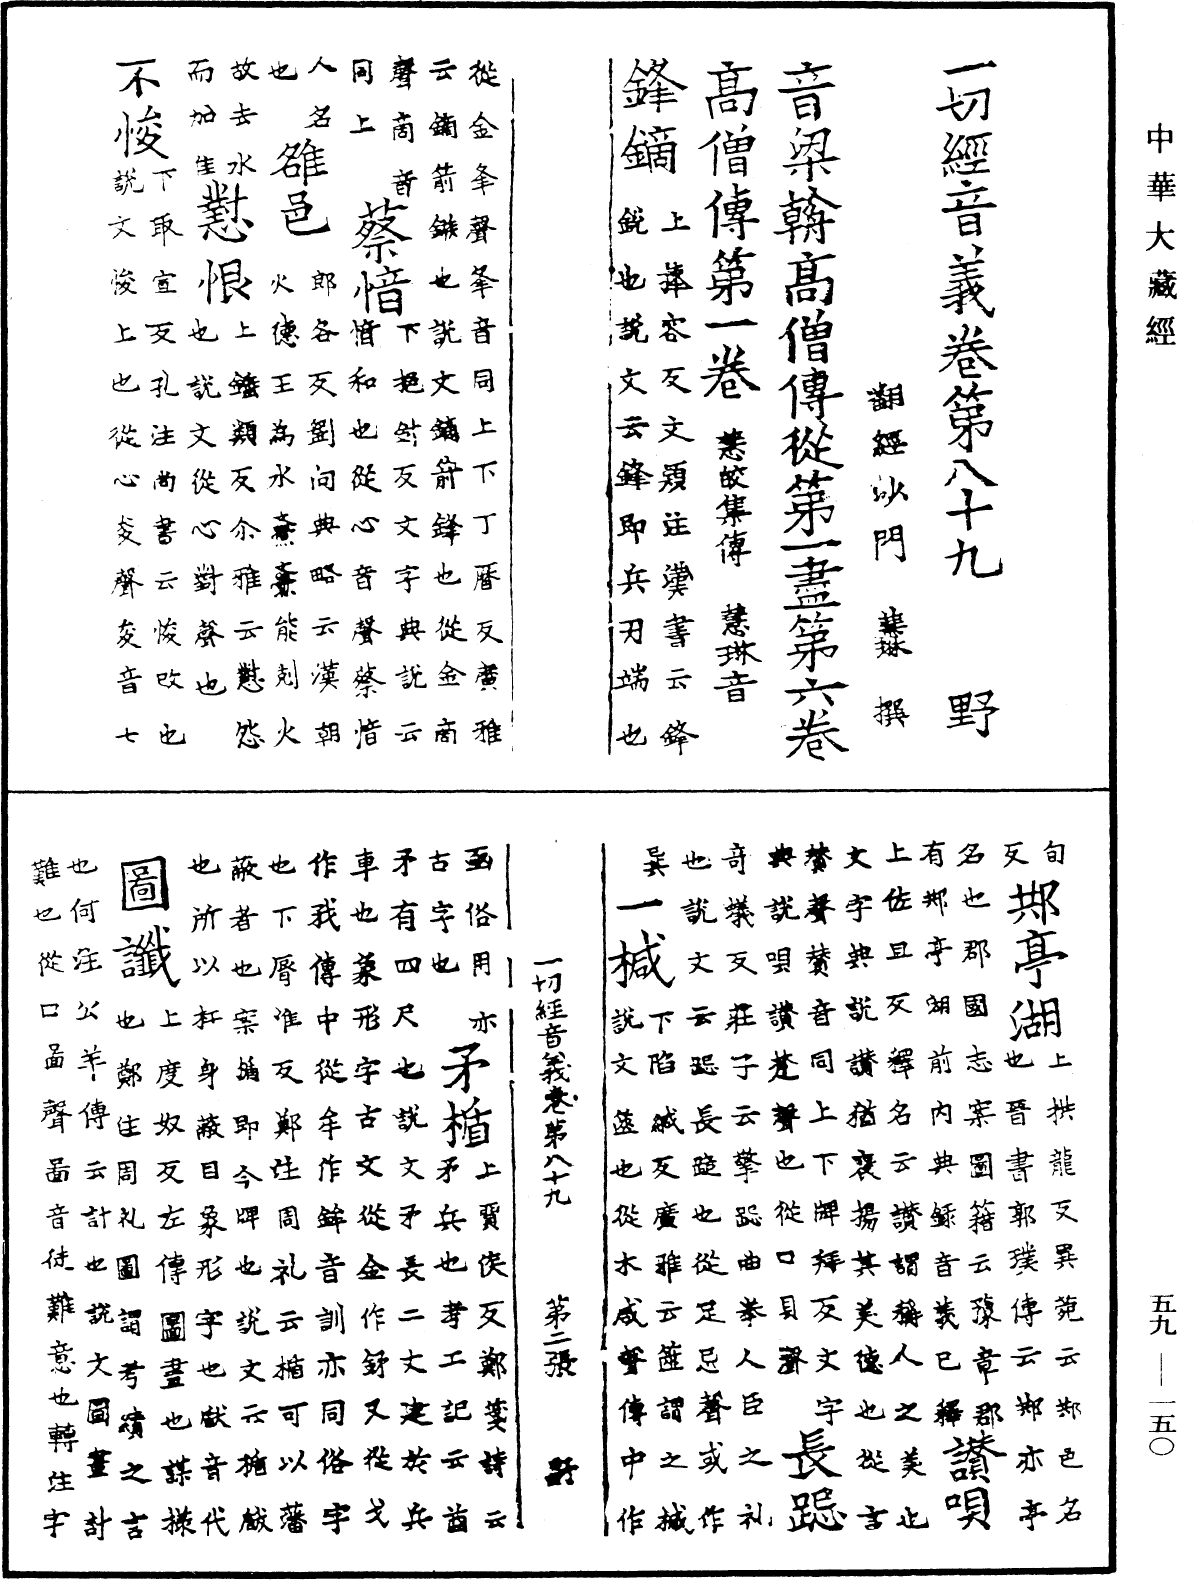 中華大藏經
一切經音義卷第八十九 野
翻經沙門 慧琳 撰
音梁朝高僧傳從第一盡第六卷
高僧傳第一卷 慧皎集傳 慧琳音
鋒鏑 上捧容反文穎注漢書云鋒
銳也說文云鋒即兵刃端也
從金夆聲夆音同上下丁曆反廣雅
云鏑箭鏃也說文鏑箭鋒也從金啇
聲啇音
同上 蔡愔 下挹針反文字典說云
愔和也從心音聲蔡愔
人名
也 雒邑 郎各反劉向典略云漢朝
火德王為水能剋火
故去水
而加隹 懟恨 上鎚類反尒雅云懟怨
也說文從心對聲也
不悛 下取宣反孔注尚書云悛改也
說文悛上也從心夋聲夋音七
旬
反 䢼亭湖 上拱龍反異苑云䢼邑名
也晉書郭璞傳云䢼亦亭
名也郡國志案圖籍云豫章郡
有䢼亭湖前內典錄音義已釋 讚唄
上佐旦反釋名云讚謂稱人之美也
文字典說讚猶襃揚其美德也從言
贊聲贊音同上下牌拜反文字
典說唄讚梵聲也從口貝聲 長跽
奇蟻反莊子云擎跽曲拳人臣之礼
也說文云跽長跪也從足忌聲或作
㠱 一椷 下陷緘反廣雅云篋謂之椷
說文篋也從木咸聲傳中作
一切經音義卷第八十九 第二張 野
函俗用亦
古字也 矛楯 上莫侯反鄭箋詩云
矛兵也考工記云酋
矛有四尺也說文矛長二丈建於兵
車也象形字古文從金作鉾又從戈
作我傳中從牟作鉾音訓亦同俗字
也下脣准反鄭注周礼云楯可以藩
蔽者也案楯即今牌也說文云楯瞂
也所以扞身蔽目象形字也瞂音代
圖讖 上度奴反左傳圖畫也謀㨾
也鄭注周礼圖謂考績之言
也何注公羊傳云計也說文圖畫計
難也從口啚聲啚音徒難意也轉注字
五九—一五〇